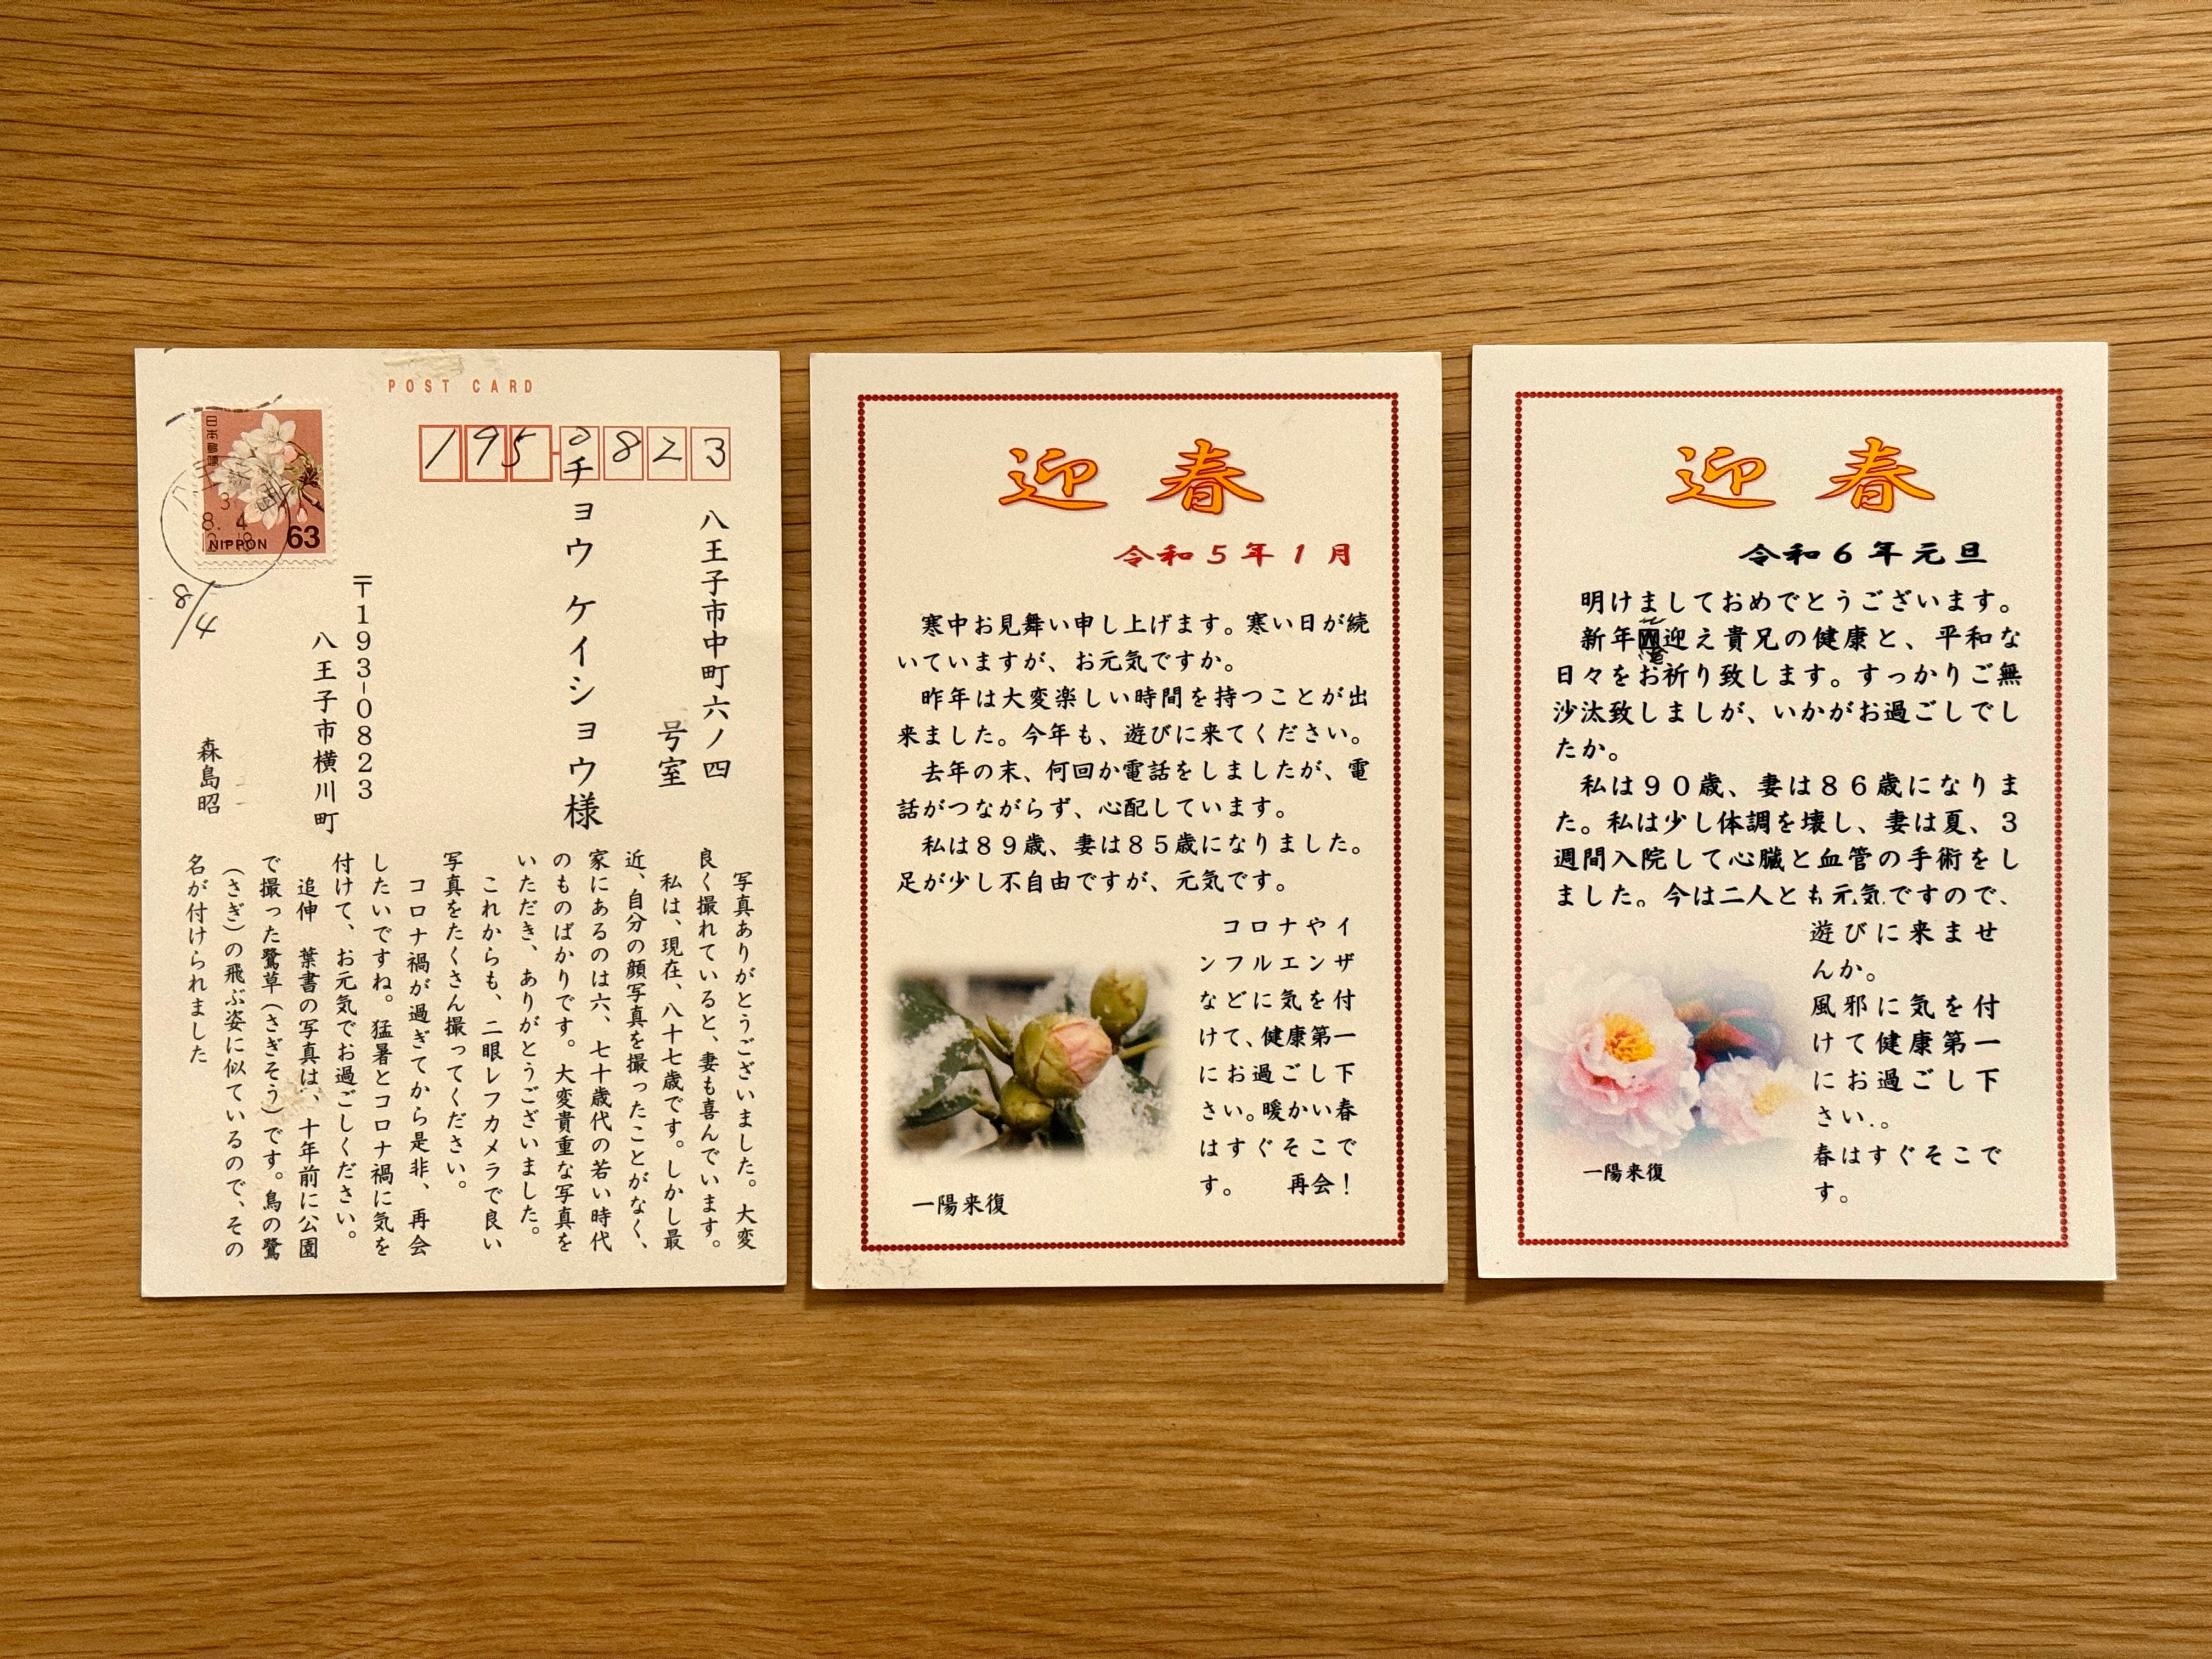 POST CARD
195-0823
日本郵便
3
8. 4
NIPPON 63
8/4
八王子市中町六ノ四
号室
チョウ ケイショウ様
〒193-0823
八王子市横川町
森島昭
写真ありがとうございました。大変
良く撮れていると、妻も喜んでいます。
私は、現在、八十七歳です。しかし最
近、自分の顔写真を撮ったことがなく、
家にあるのは六、七十歳代の若い時代
のものばかりです。大変貴重な写真を
いただき、ありがとうございました。
これからも、二眼レフカメラで良い
写真をたくさん撮ってください。
コロナ禍が過ぎてから是非、再会
したいですね。猛暑とコロナ禍に気を
付けて、お元気でお過ごしください。
追伸 葉書の写真は、十年前に公園
で撮った鷺草(さぎそう)です。鳥の鷺
(さぎ)の飛ぶ姿に似ているので、その
名が付けられました
迎春
令和5年1月
寒中お見舞い申し上げます。寒い日が続
いていますが、お元気ですか。
昨年は大変楽しい時間を持つことが出
来ました。今年も、遊びに来てください。
去年の末、何回か電話をしましたが、電
話がつながらず、心配しています。
私は89歳、妻は85歳になりました。
足が少し不自由ですが、元気です。
コロナやイ
ンフルエンザ
などに気を付
けて、健康第一
にお過ごし下
さい。暖かい春
はすぐそこで
す。 再会!
一陽来復
迎春
令和6年元旦
明けましておめでとうございます。
新年迎え貴兄の健康と、平和な
日々をお祈り致します。すっかりご無
沙汰致しましが、いかがお過ごしでし
たか。
私は90歳、妻は86歳になりま
た。私は少し体調を壊し、妻は夏、3
週間入院して心臓と血管の手術をし
ました。今は二人とも元気ですので、
遊びに来ませ
んか。
風邪に気を付
けて健康第一
にお過ごし下
さい.。
春はすぐそこで
す。
一陽来復